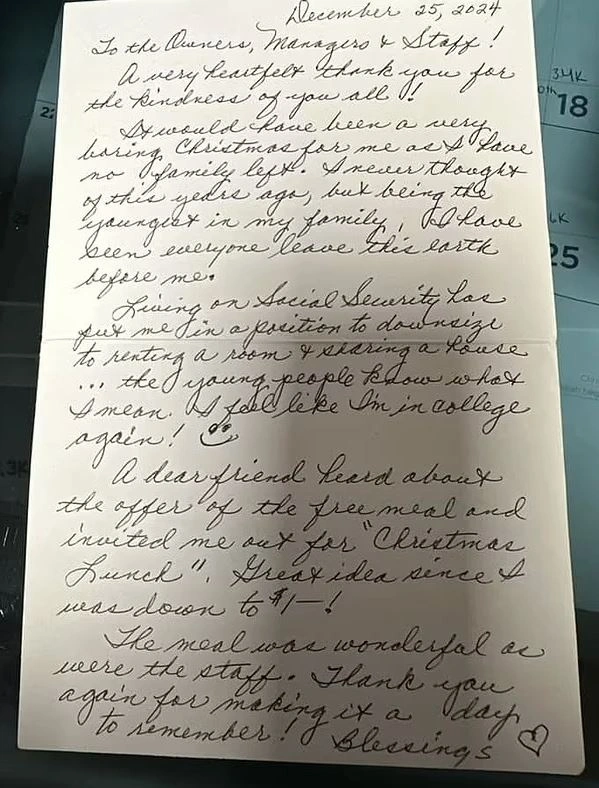 December 25, 2024
To the Owners, Managers & Staff!
A very heartfelt thank you for
the kindness of you all!!
It would have been a very
boring Christmas for me as I have
no family left. I never thought
of this years ago, but being the
youngest in my family, I have
seen everyone leave this earth
before me.
Living on Social Security has
put me in a position to downsize
to renting a room & sharing a house
... the young people know what
I mean. I feel like I'm in college
again!
A dear friend heard about
the offer of the free meal and
invited me out for "Christmas
Lunch". Great idea since I
was down to $1—!
The meal was wonderful as
were the staff. Thank you
again for making it a day
to remember! Blessings
3.4K
18
22
25